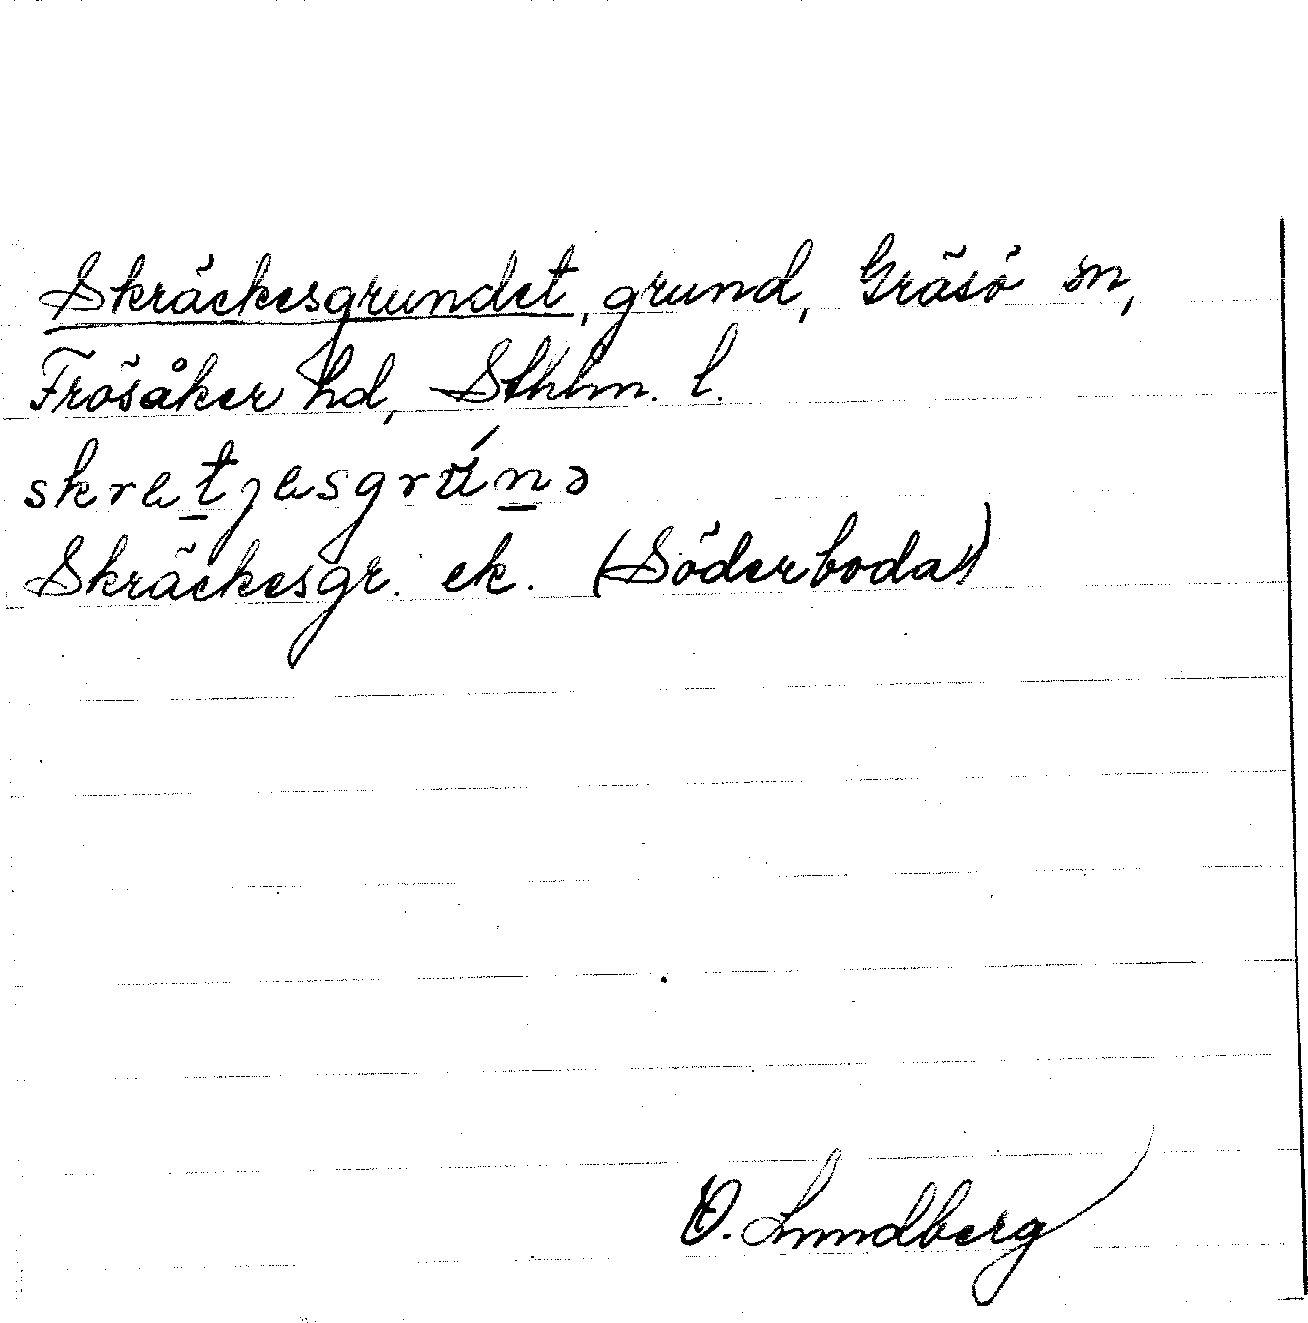 Skräckesgrundet, grund, Gräsö sn,
Frösåker hd, Sthlm. l.
skretjesgrúnə
Skräckesgr. ek. (Söderboda)
O. Lundberg